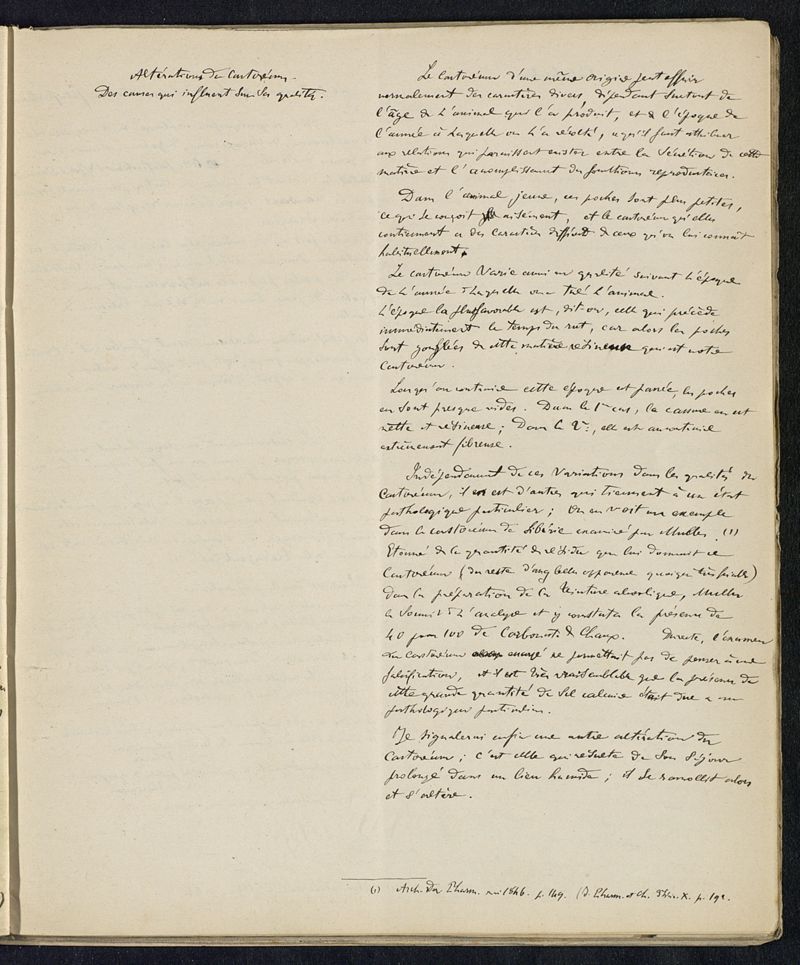 Altérations du Castoréum.
Des causes qui influent sur ses qualités.
Le Castoréum d'une même origine peut offrir
normalement des caractères divers, dépendant surtout de
l'âge de l'animal qui l'a produit, et de l'époque de
l'année à laquelle on l'a récolté, ce qu'il faut attribuer
aux relations qui paraissent exister entre la sécrétion de cette
matière et l'accomplissement des fonctions reproductrices.
Dans l'animal jeune, ces poches sont plus petites,
ce qui se conçoit aisément, et le castoréum qu'elles
contiennent a des caractères différents de ceux qu'on lui connaît
habituellement.
Le castoréum varie aussi en qualité suivant l'époque
de l'année à laquelle on a tué l'animal.
L'époque la plus favorable est, dit-on, celle qui précède
immédiatement le temps du rut, car alors les poches
sont gonflées de cette matière résineuse qui est notre
Castoréum.
Lorsqu'au contraire cette époque est passée, les poches
en sont presque vides. Dans le 1er cas, la cassure en est
nette et résineuse; Dans le 2e, elle est au contraire
extrêmement fibreuse.
Indépendamment de ces variations dans les qualités du
Castoréum, il en est d'autres qui tiennent à un état
pathologique particulier; On en voit un exemple
dans le castoréum de Sibérie examiné par Muller. (1)
Etonné de la quantité de résidu que lui donnait ce
Castoréum (du reste d'une belle apparence quoique très friable)
dans la préparation de la teinture alcoolique, Muller
le soumit à l'analyse et y constata la présence de
40 pour 100 de Carbonate de Chaux. Du reste, l'examen
du Castoréum ne permettait pas de penser à une
falsification, et il est très vraisemblable que la présence de
cette grande quantité de sel calcaire était due à un
pathologique particulier.
Je signalerai enfin une autre altération du
Castoréum; c'est celle qui résulte de son séjour
prolongé dans un lieu humide; il se ramollit alors
et s'altère.
(1) Arch. der Pharm. mai 1846. p. 149. (J. Pharm. et Ch. 3e série. X. p. 192.